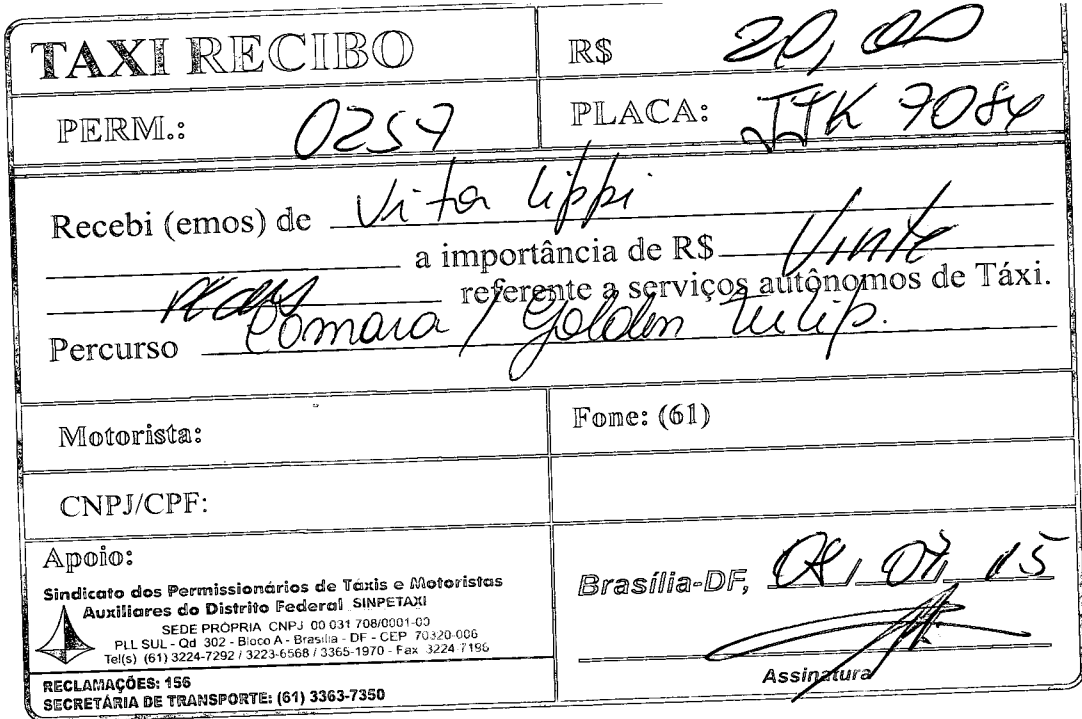 TAXI RECIBO
R$ 20,00
PERM.: 0257
PLACA: JJK 7084
Recebi (emos) de Vitor Lippi
a importância de R$ Vinte
reais referente a serviços autônomos de Táxi.
Percurso Camara / Golden Tulip.
Motorista:
Fone: (61)
CNPJ/CPF:
Apoio:
Sindicato dos Permissionários de Táxis e Motoristas
Auxiliares do Distrito Federal SINPETAXI
SEDE PRÓPRIA CNPJ 00 031 708/0001-00
PLL SUL - Qd 302 - Bloco A - Brasília - DF - CEP 70320-006
Tel(s) (61) 3224-7292 / 3223-6568 / 3365-1970 - Fax 3224-7196
RECLAMAÇÕES: 156
SECRETÁRIA DE TRANSPORTE: (61) 3363-7350
Brasília-DF, 08, 07, 15
Assinatura